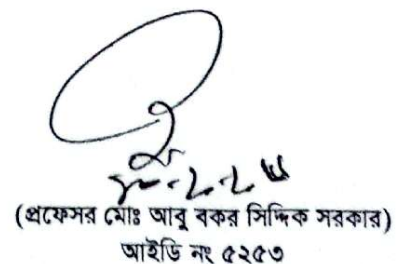 (প্রফেসর মোঃ আবু বকর সিদ্দিক সরকার)
আইডি নং ৫২৫৩